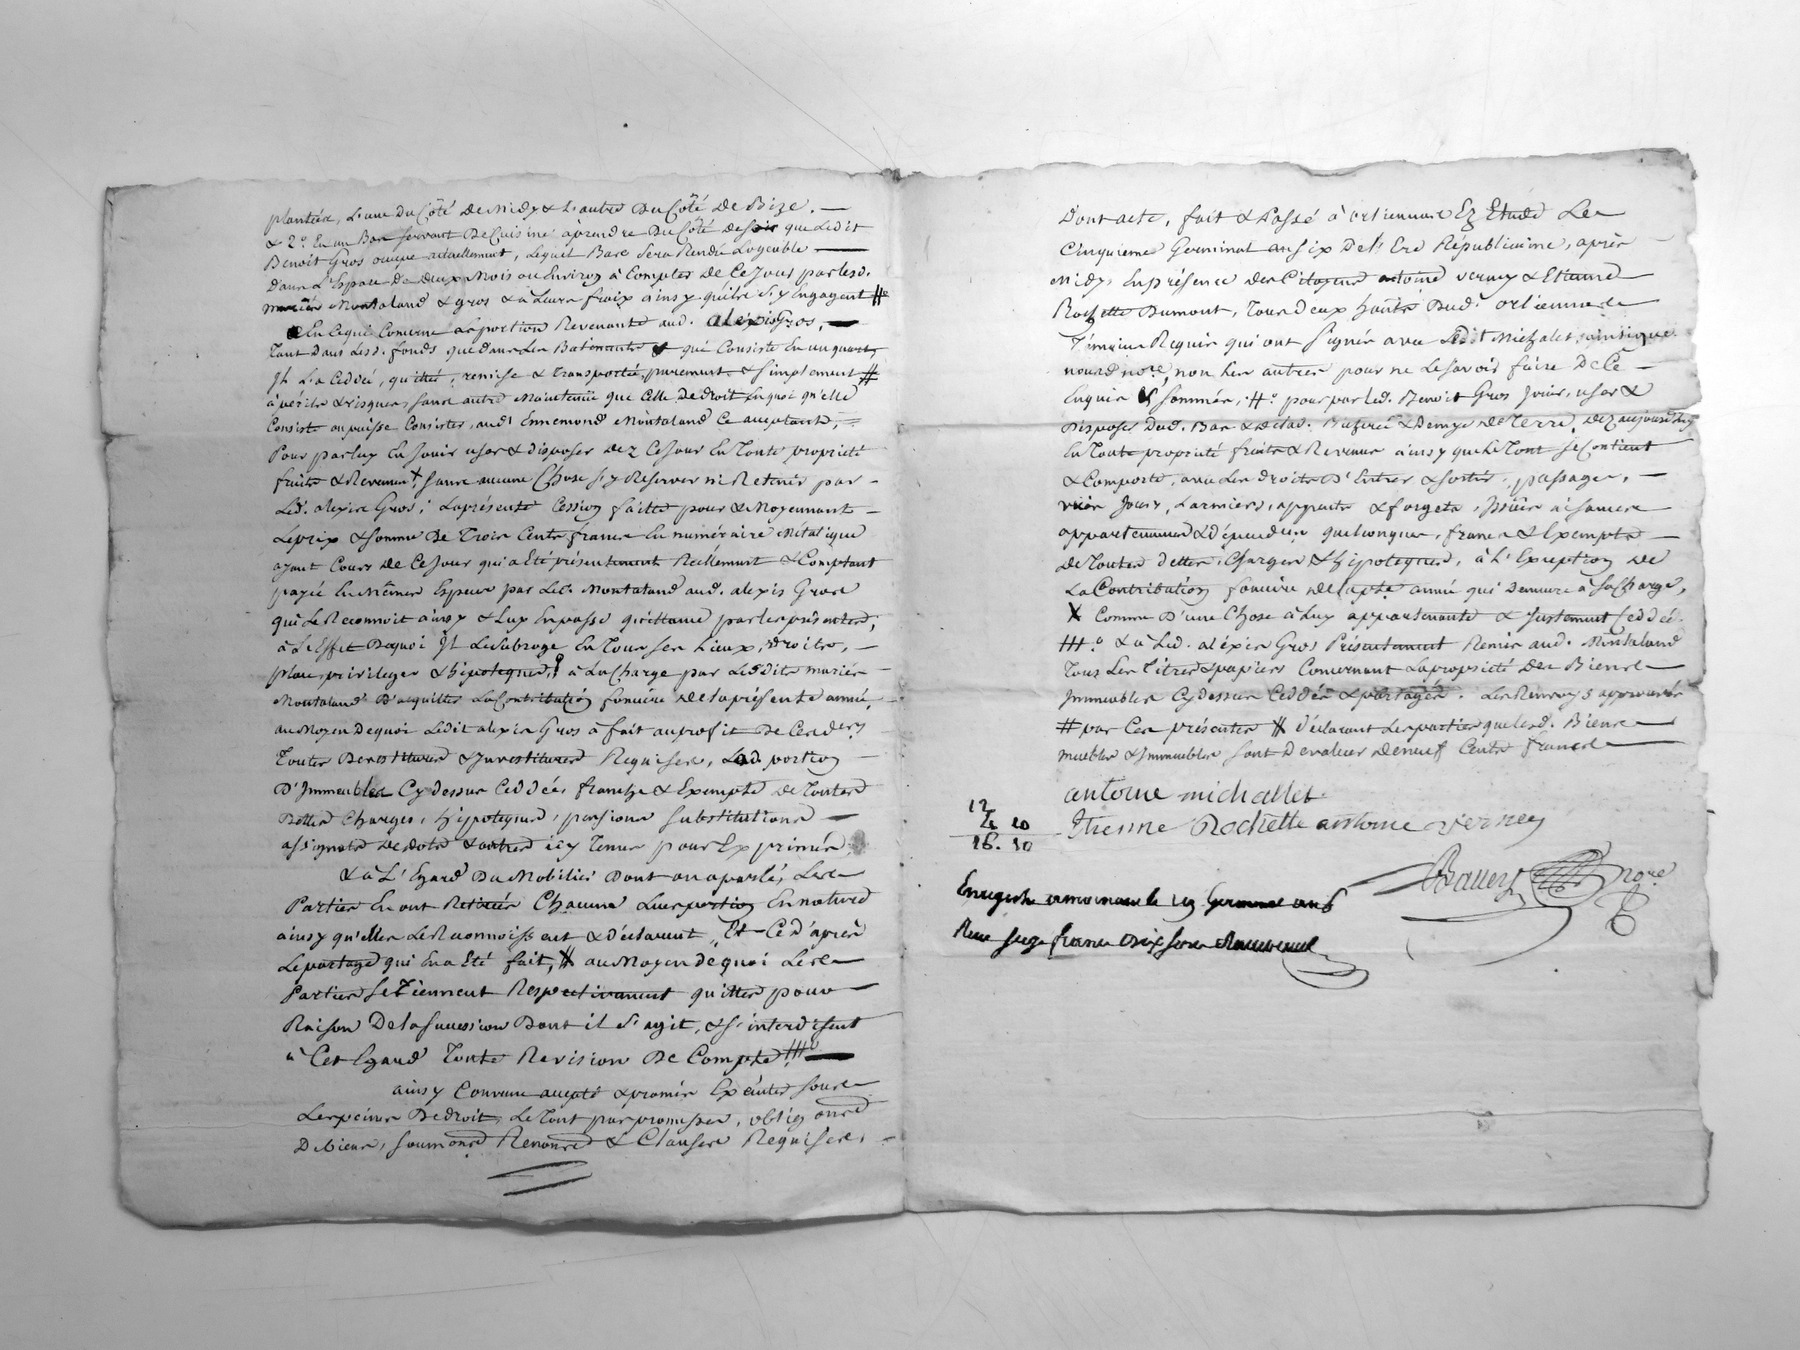 plantiée, L'une Du Côté de Midy & L'autre Du Côté De Bize. —
& 2.° En un Bas servant De Cuisine aprendre Du Côté de soir que Ledit
Benoit Gros occupe actuellement, Lequel Bas Sera Rendu Logeable —
Dans L'Espace De deux Mois ou Environ à Compter De Ce Jour par lesd.
mariés Montaland & gros & à Leurs fraix ainsy qu'ils s'y Engagent #°
En Ce qui Concerne la portion Revenante aud. alexis Gros, —
Tant Dans Lesd. fonds que dans Les Batiments & qui Consiste En un quart,
Il L'a Ceddée, quittée, remise & Transportée, purement & simplement #
à périls & risques, sans autre Maintenüe que Celle De droit En quoi qu'elle
Consiste ou puisse Consister, aud. Ennemond Montaland Ce acceptant, =
Pour par luy En Jouir user & disposer dez Ce Jour En Toute propriété
fruits & Revenus X sans aucune Chose s'y Reserver ni Retenir par -
Led. alexis Gros; La présente Cession faitte pour & Moyennant —
Le prix & somme De Trois Cents francs En numéraire Métalique
ayant Cours de Ce Jour qui a Eté présentement Réellement & Comptant
payé En Mêmes Especes par Led. Montaland aud. alexis Gros
qui Le Reconnoit ainsy & Luy En passe quittance par les présentes,
à L'Effet De quoi Il Le Subroge En Tous ses Lieux, droits, —
place, privileges & hipoteques, à La Charge par Lesdits mariés
Montaland D'acquitter La Contribution foncière de la présente année,
au Moyen De quoi Ledit alexis Gros à fait au profit De Ces derniers
Toutes Devestitures & Investitures Requises, Lad. portion —
D'Immeubles Cy dessus Ceddée, franche & Exempte de Toutes
Dettes Charges, hipoteques, pensions substitutions —
assignats de dots & autres icy Tenus pour Exprimés
& à L'Egard Du Mobilier Dont on a parlé, Les
Parties En ont Retirées Chacune Leur portion En nature
ainsy qu'elles Le Reconnoissent & déclarent, Et Ce d'après
Le partage qui En a Eté fait, # au Moyen de quoi Les
Parties Se Tiennent Respectivement quittes pour —
Raison De la Succession Dont il s'agit, & s'interdisent
à Cet Egard Toute Revision De Compte ###° —
ainsy Convenu accepté & promis Exécuter sous
Les peines De droit, Le Tout par promesses, oblig ons
De biens, soum ons Renons & Clauses Requises. —
Dont acte, fait & Passé à ortiennaz Ez Etude Le
Cinquieme Germinal an six De L'Ere Républicaine, après
Midy, En présence des Citoyens antoine verney & Etienne
Rochette Dumont, Tous deux habts Dud. ortiennaz
Témoins Requis qui ont Signés avec Ledit Michalet, ainsi que
nousd. nore, non Les autres pour ne Le Savoir faire De Ce —
Enquis & sommés, #° pour par led. Benoit Gros Jouir, user &
Disposer Dud. Bas & Desd. Bicherée & Demye de Terre, dez aujourdhuy
En Toute propriété fruits & Revenus ainsy que Le Tout se Contient
& Comporte, avec Les droits D'Entrer & sortir, passages, —
vües Jours, Larmiers, appuits & forgets, issües aisances
appartenances & dépendces quelconques, francs & Exempts —
de Toutes dettes, Charges & hipoteques, à L'Exception De
La Contribution foncière de la pste année qui Demeure à Sa Charge,
X Comme D'une Chose à Luy appartenante & justement Ceddée.
###° & à Led. aléxis Gros Présentement Remis aud. Montaland
Tous Les Titres & papiers Concernant La propriété des Biens
Immeubles Cy dessus Ceddés & partagés. Les Renvoys approuvés
# par Ces présentes # déclarant Les parties que Lesd. Biens
meubles & Immeubles sont De valeur de neuf Cents francs
antoine michallet
12
4 10
16. 10
Etienne Rochette antoine verney
nore
Enregistré le 19 Germinal an 6
Reçu seize francs dix sous